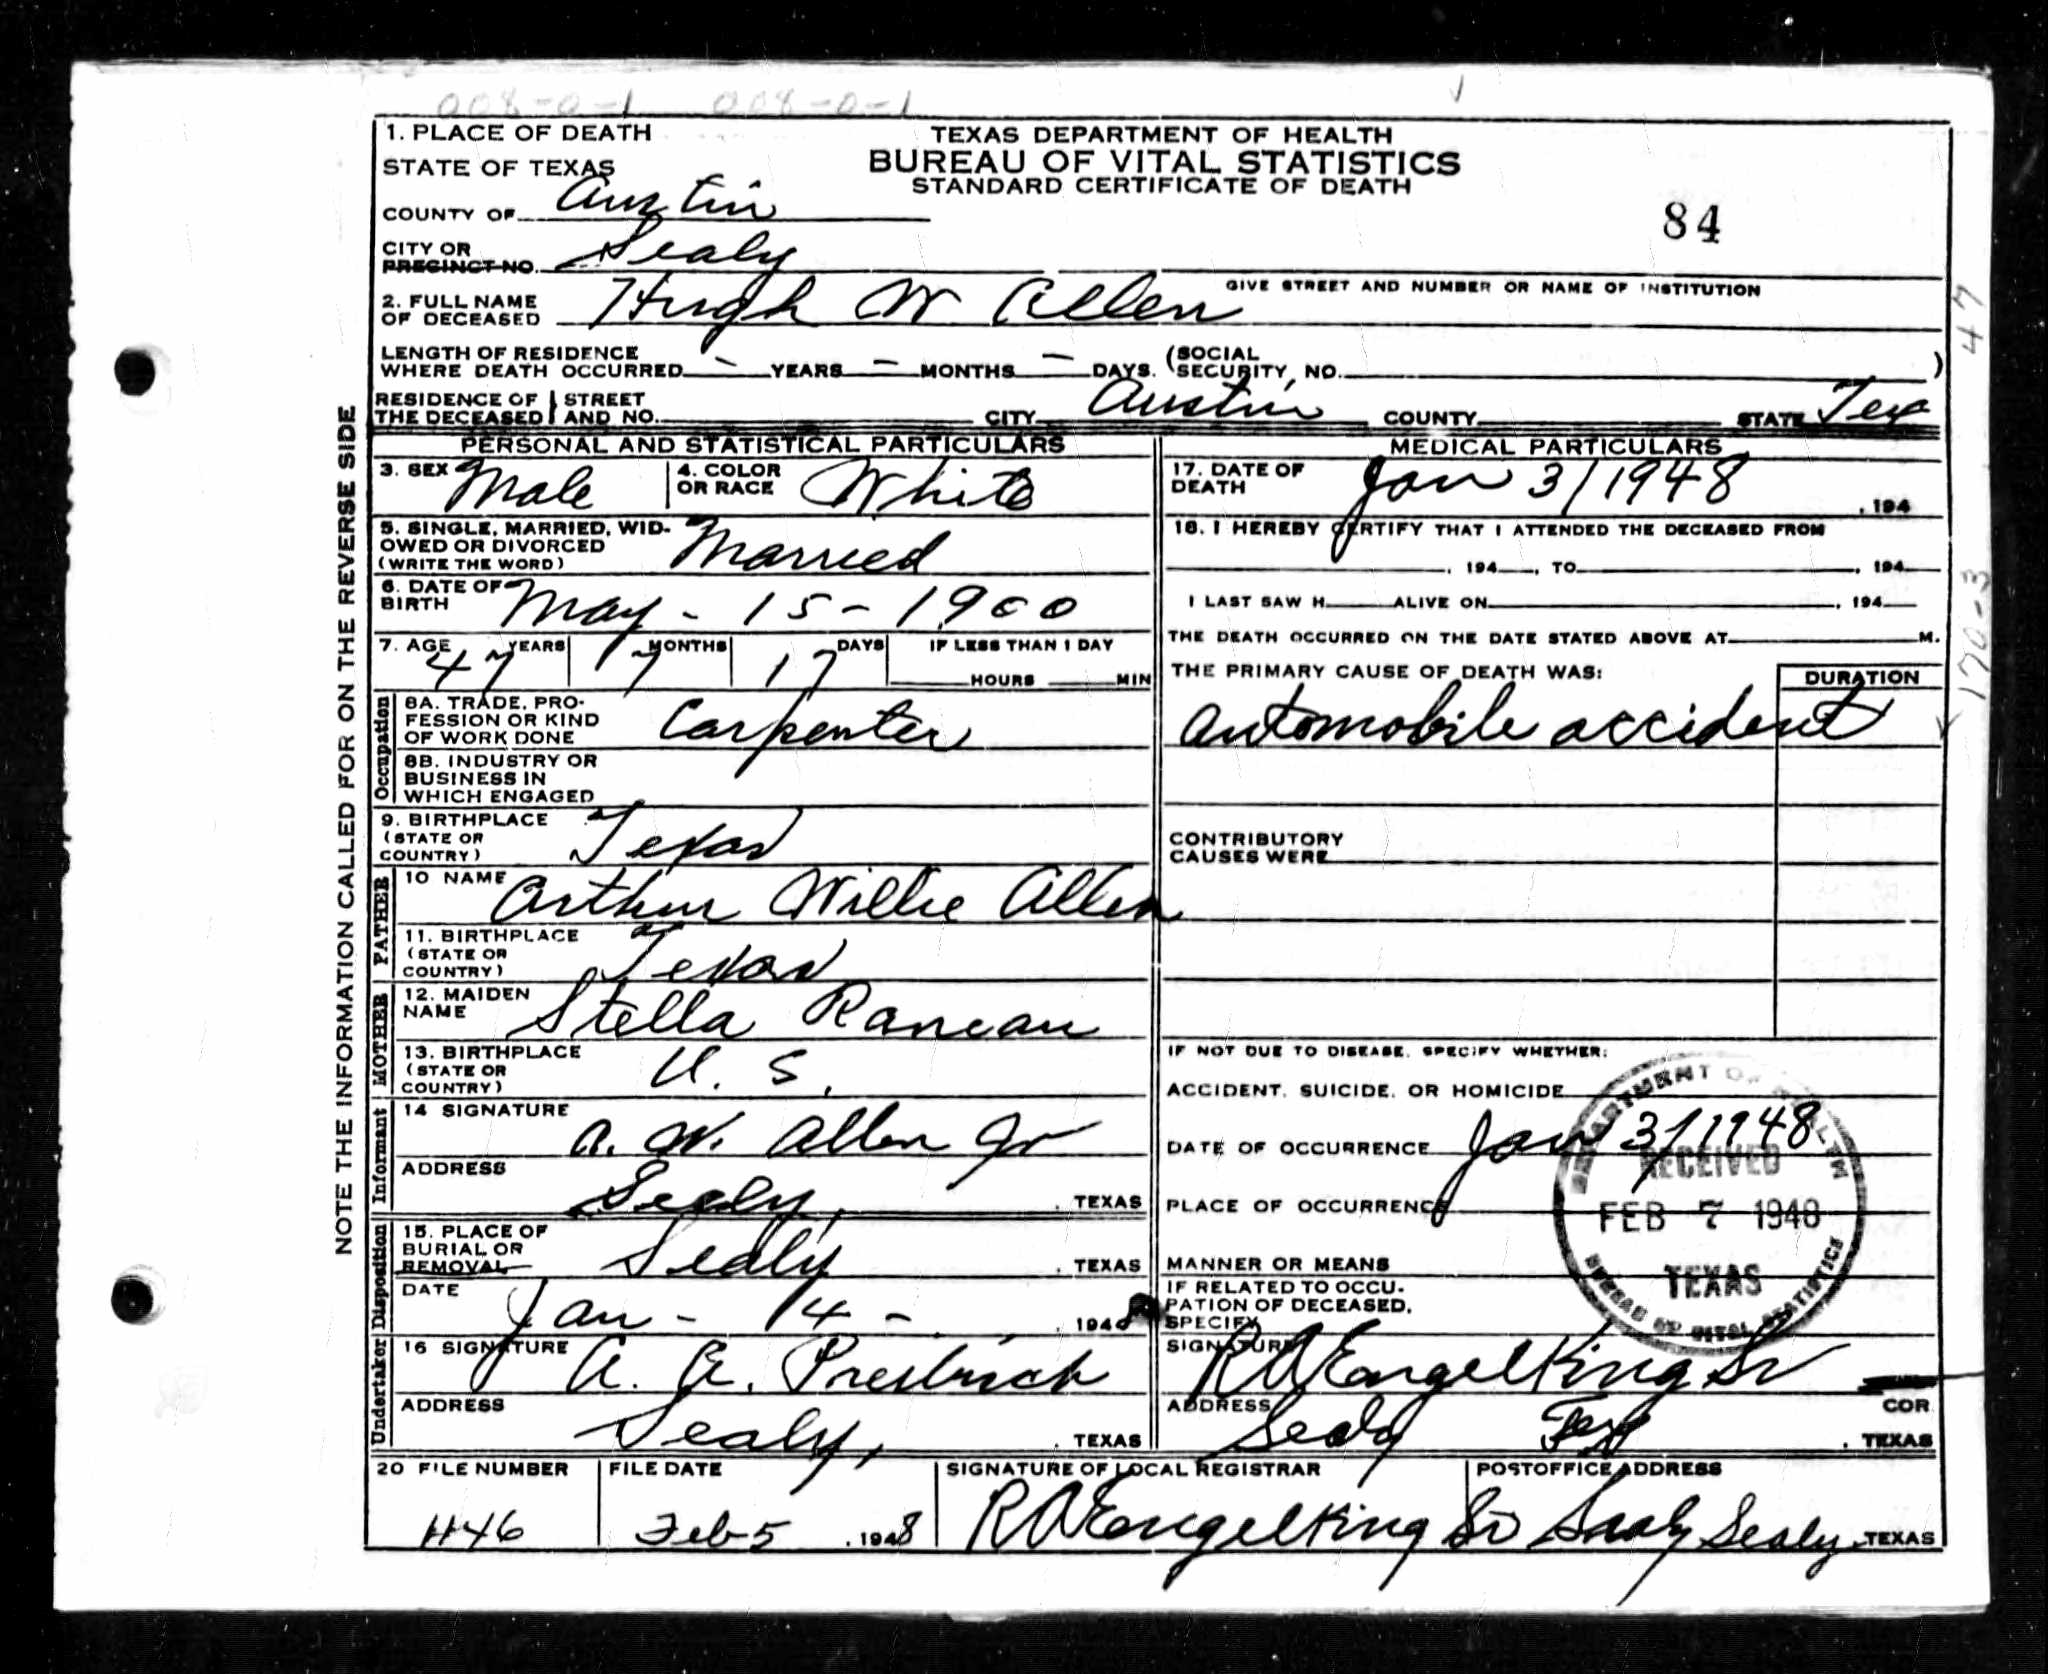 008-0-1 008-0-1
1. PLACE OF DEATH
STATE OF TEXAS
COUNTY OF Austin
CITY OR
PRECINCT NO. Sealy
TEXAS DEPARTMENT OF HEALTH
BUREAU OF VITAL STATISTICS
STANDARD CERTIFICATE OF DEATH
84
GIVE STREET AND NUMBER OR NAME OF INSTITUTION
2. FULL NAME
OF DECEASED Hugh W Allen
LENGTH OF RESIDENCE
WHERE DEATH OCCURRED - YEARS - MONTHS - DAYS. (SOCIAL
SECURITY, NO. )
RESIDENCE OF THE DECEASED STREET AND NO. CITY Austin COUNTY STATE Tex
NOTE THE INFORMATION CALLED FOR ON THE REVERSE SIDE
PERSONAL AND STATISTICAL PARTICULARS
3. SEX Male 4. COLOR OR RACE White
5. SINGLE, MARRIED, WID-
OWED OR DIVORCED
(WRITE THE WORD) Married
6. DATE OF
BIRTH May - 15 - 1900
7. AGE 47 YEARS 7 MONTHS 17 DAYS IF LESS THAN 1 DAY
HOURS MIN
Occupation
8A. TRADE, PRO-
FESSION OR KIND
OF WORK DONE Carpenter
8B. INDUSTRY OR
BUSINESS IN
WHICH ENGAGED
9. BIRTHPLACE
(STATE OR
COUNTRY) Texas
FATHER
10 NAME Arthur Willie Allen
11. BIRTHPLACE
(STATE OR
COUNTRY) Texas
MOTHER
12. MAIDEN
NAME Stella Raneau
13. BIRTHPLACE
(STATE OR
COUNTRY) U. S.
Informant
14 SIGNATURE A. W. Allen Jr
ADDRESS Sealy, TEXAS
Disposition
15. PLACE OF
BURIAL OR
REMOVAL Sealy, TEXAS
DATE Jan - 14 - , 194
Undertaker
16 SIGNATURE
ADDRESS Sealy, TEXAS
MEDICAL PARTICULARS
17. DATE OF
DEATH Jan 3/1948 , 194
18. I HEREBY CERTIFY THAT I ATTENDED THE DECEASED FROM
, 194 , TO , 194
I LAST SAW H ALIVE ON , 194
THE DEATH OCCURRED ON THE DATE STATED ABOVE AT M.
THE PRIMARY CAUSE OF DEATH WAS: DURATION
automobile accident
CONTRIBUTORY
CAUSES WERE
IF NOT DUE TO DISEASE, SPECIFY WHETHER:
ACCIDENT, SUICIDE, OR HOMICIDE
DATE OF OCCURRENCE Jan 3/1948
PLACE OF OCCURRENCE
MANNER OR MEANS
IF RELATED TO OCCU-
PATION OF DECEASED,
SPECIFY
SIGNATURE R A Engelking Sr
COR
ADDRESS Sealy Tex , TEXAS
DEPARTMENT OF HEALTH
RECEIVED
FEB 7 1948
TEXAS
BUREAU OF VITAL STATISTICS
47
170-3
20 FILE NUMBER FILE DATE SIGNATURE OF LOCAL REGISTRAR POSTOFFICE ADDRESS
1146 Feb 5 , 1948 R A Engelking Sr Sealy Sealy, TEXAS